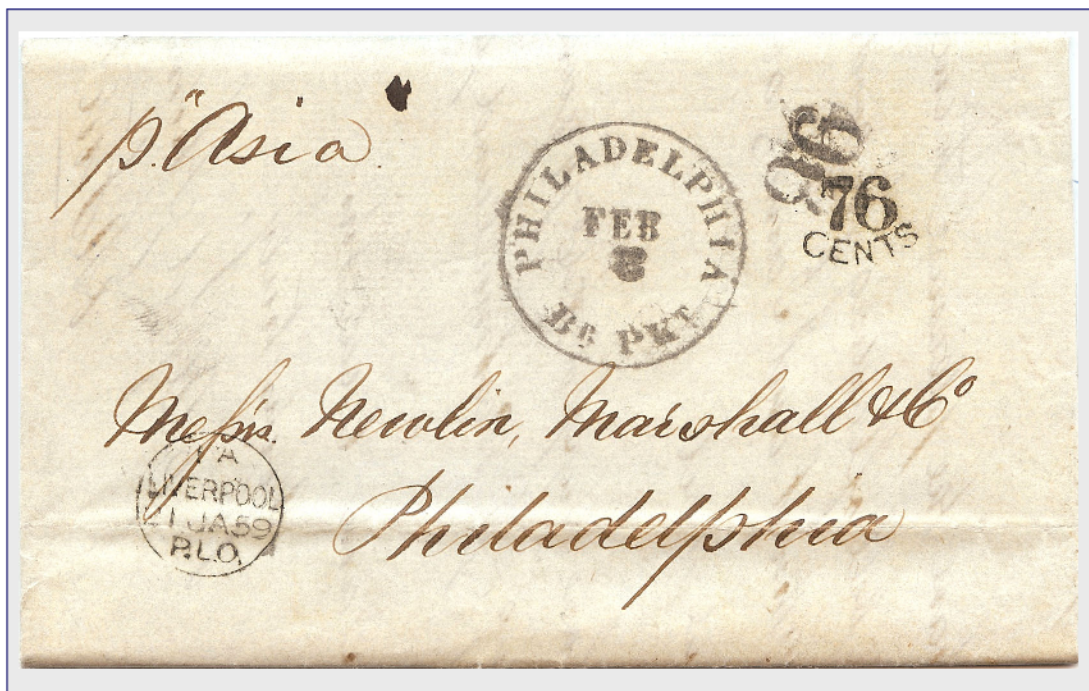 p. "Asia"
PHILADELPHIA
FEB
8
Br PKT
96
76
CENTS
Messrs. Newlin, Marshall & Co
Philadelphia
LIVERPOOL
21 JA 59
P.L.O.